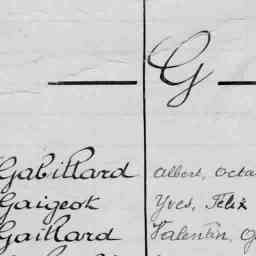 G
Gabillard Albert, Octa
Gaigeot Yves, Félix
Gaillard Valentin, G